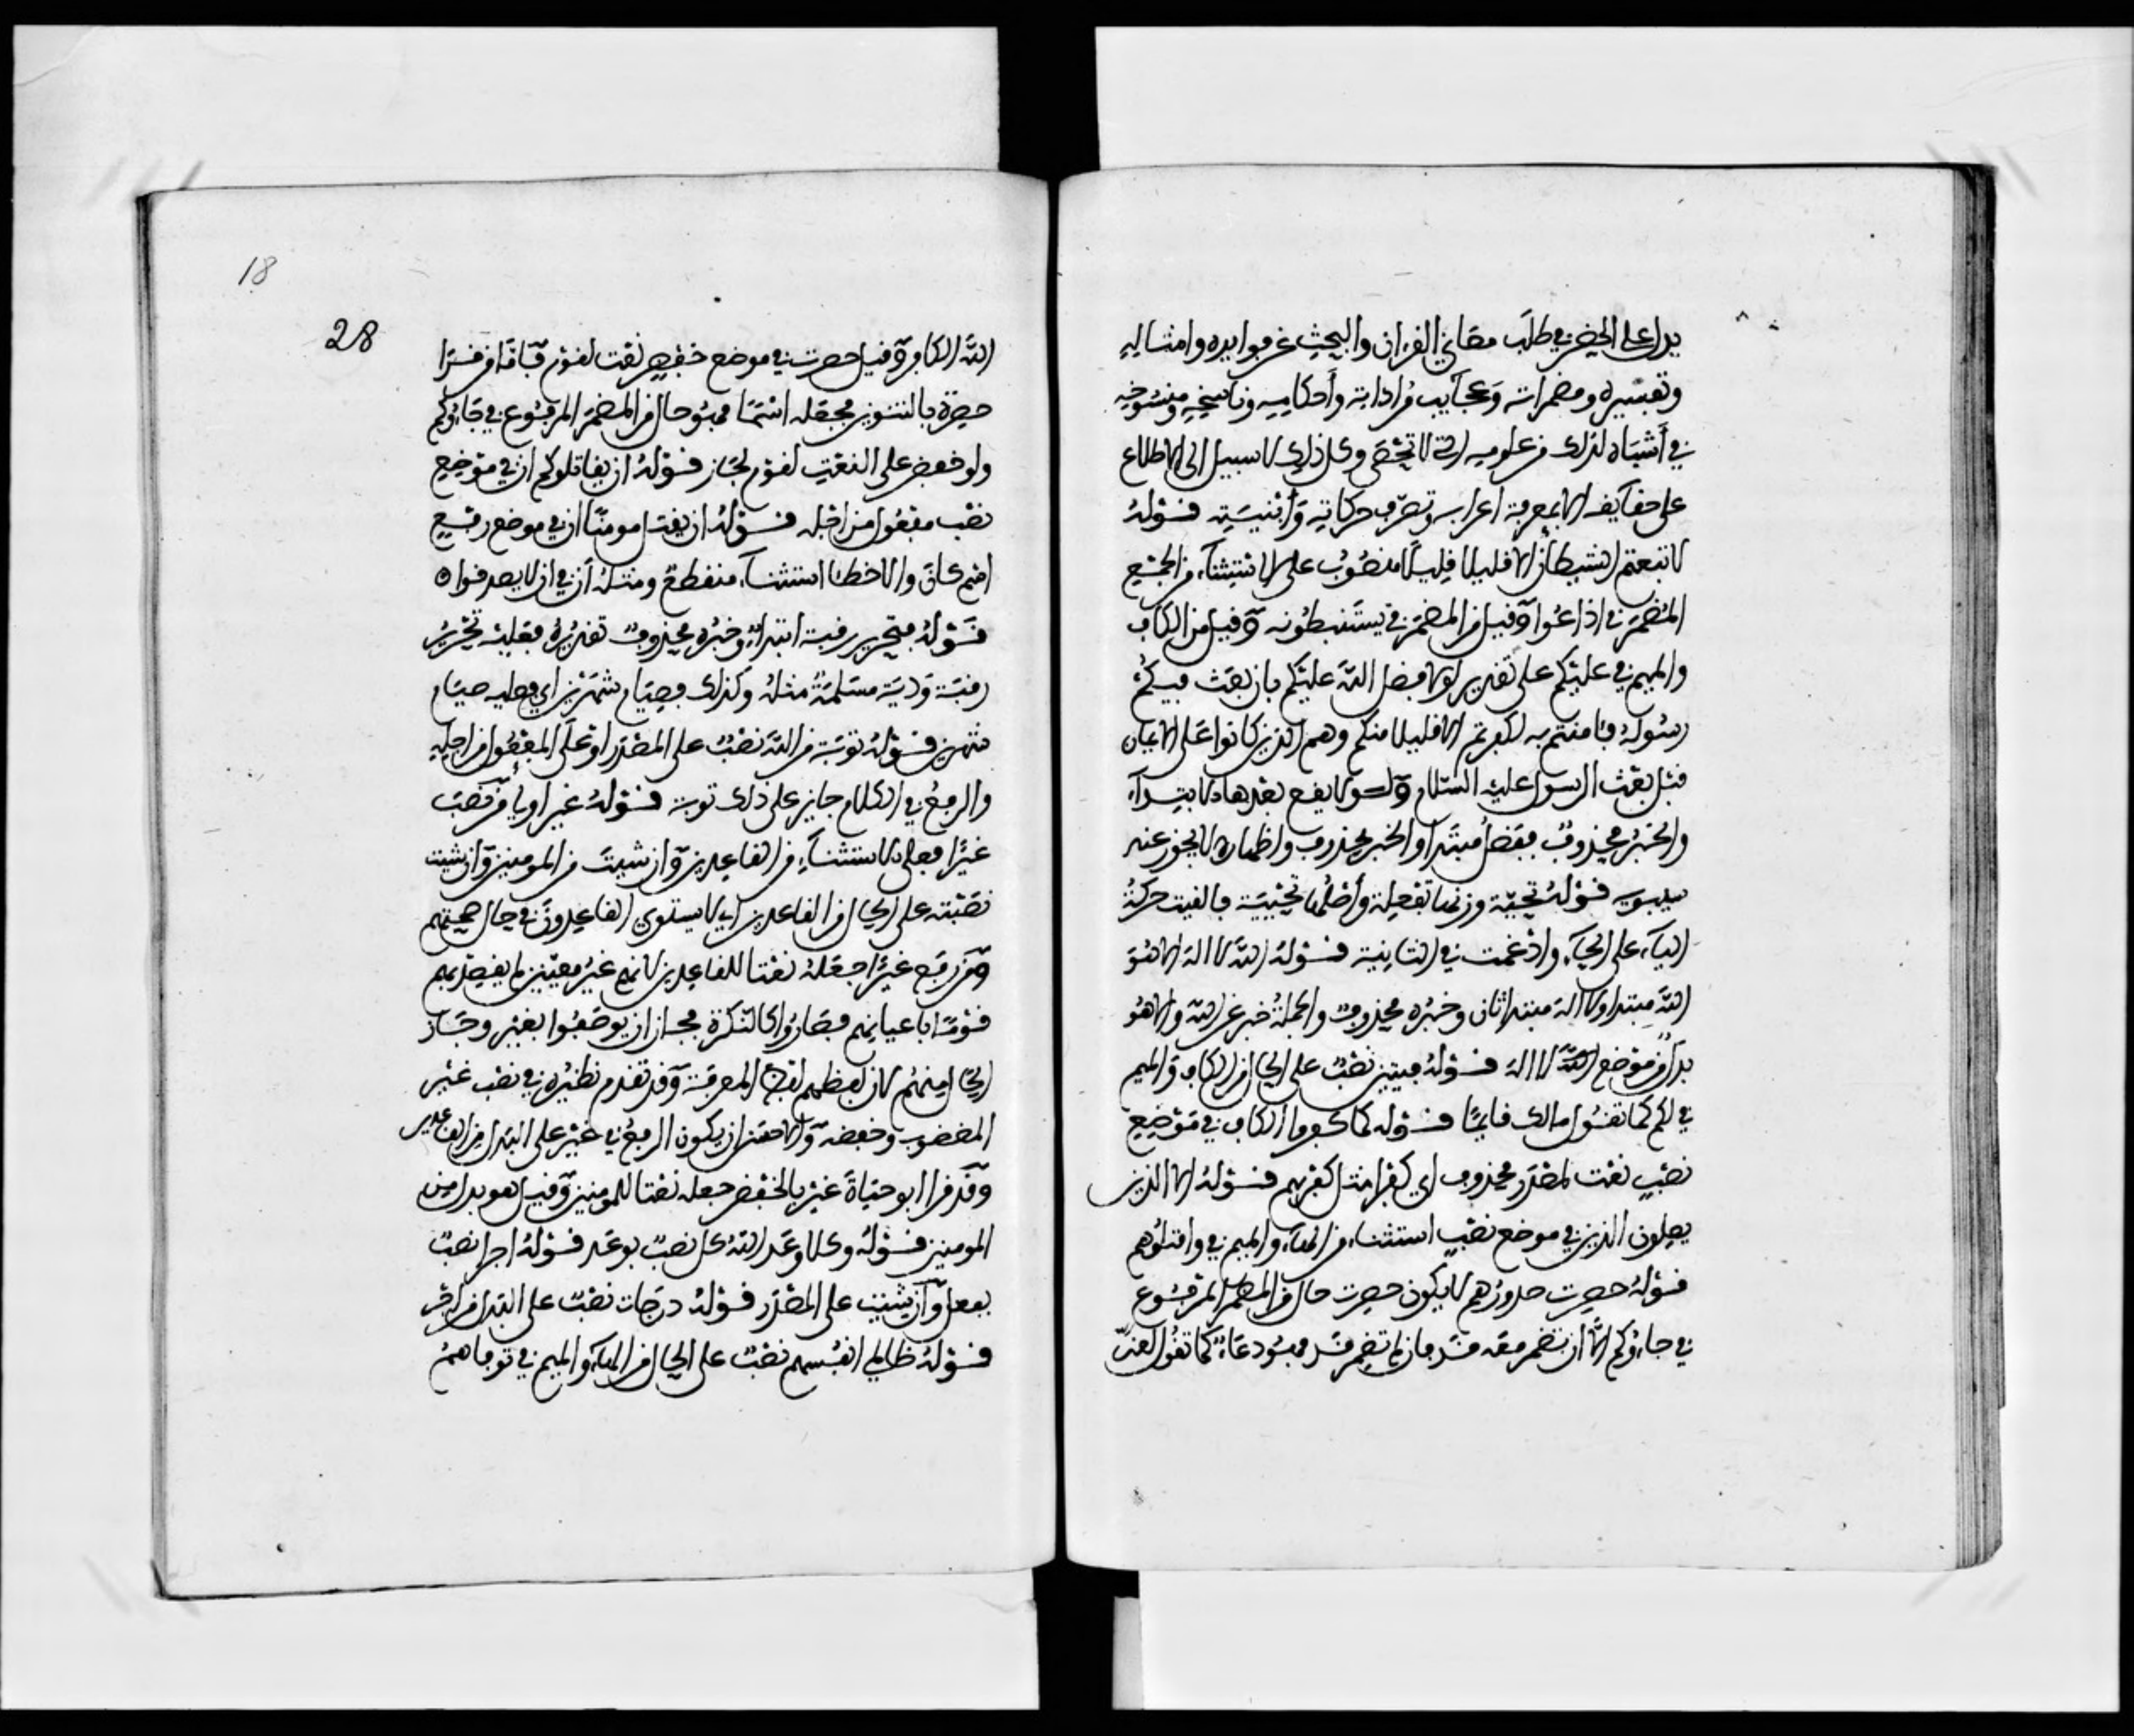 يدل على الحض في طلب معاني القرءان والبحث عن فوايده وامثاله
وتفسيره ومضمراته وعجايب مراداته وأحكامه وناسخه ومنسوخه
في أشباه لذلك من علومه التي لا تحصى وكل ذلك لا سبيل الى الاطلاع
على حقايقه الا بمعرفة اعرابه وتصرف حركاته وأبنيته قوله
لاتبعتم الشيطان الا قليلا قليلا منصوب على الاستثناء من الجمع
المضمر في اذاعوا وقيل من المضمر في يستنبطونه وقيل من الكاف
والميم في عليكم على تقدير لولا فضل الله عليكم بان بعث فيكم
رسوله فامنتم به لكفرتم الا قليلا منكم وهم الذين كانوا على الايمان
قبل بعث الرسول عليه السلام ولولا يقع بعدها الابتداء
والخبر محذوف ففضل مبتدا والخبر محذوف واظهاره لا يجوز عند
سيبويه قوله تحية وزنها تفعلة وأصلها تحيية فالقيت حركة
الياء على الحاء وادغمت في الثانية قوله الله لا اله الا هو
الله مبتدا ولا اله مبتدا ثاني وخبره محذوف والجملة خبر عن الله والا هو
بدل من موضع لا اله قوله فيتين نصب على الحال من الكاف والميم
في لكم كما تقول مالك قايما قوله كما كفروا الكاف في موضع
نصب نعت لمصدر محذوف اي كفرا مثل كفرهم قوله الا الذين
يصلون الذين في موضع نصب استثناء من الهاء والميم في واقتلوهم
قوله حصرت صدورهم لا يكون حصرت حال من المضمر المرفوع
في جاءوكم الا أن تضمر معه قد فان لم تضمر قد فهو دعاء كما تقول لعن
الله الكافر وقيل حصرت في موضع خفض نعت لقوم فاما من قرا
حصرة بالتنوين فجعله اسما فهو حال من المضمر المرفوع في جاءوكم
ولو خفض على النعت لقوم لجاز قوله ان يقاتلوكم ان في موضع
نصب مفعول من اجله قوله ان يقتل مومنا ان في موضع رفع
اسم كان والا خطا استثناء منقطع ومثله أن في ان يصدقوا
قوله فتحرير رقبة ابتداء وخبره محذوف تقديره فعليه تحرير
رقبة ودية مسلمة مثله وكذلك فصيام شهرين اي فعليه صيام
شهرين قوله توبة من الله نصب على المصدر او على المفعول من اجله
والرفع في الكلام جايز على ذلك توبة قوله غير اولي من نصب
غيرا فعلى الاستثناء من القاعدين وان شيت من المومنين وان شيت
نصبته على الحال من القاعدين اي لا يستوي القاعدون في حال صحتهم
ومن رفع غيرا جعله نعتا للقاعدين لانهم غير معينين لم يقصد بهم
قوما باعيانهم فصاروا كالنكرة فجاز ان يوصفوا بغير وجاز
الحال منهم لان لفظهم لفظ المعرفة وقد تقدم نظيره في نصب غير
المغضوب وخفضه والاحسن ان يكون الرفع في غير على البدل من القاعدين
وقد قرا ابو حياة غير بالخفض جعله نعتا للمومنين وقيل هو بدل من
المومنين قوله وكلا وعد الله كل نصب بوعد قوله اجرا نصب
بفعل وان شيت على المصدر قوله درجات نصب على البدل من اجر
قوله ظالمي انفسهم نصب على الحال من الهاء والميم في توفاهم
18
28